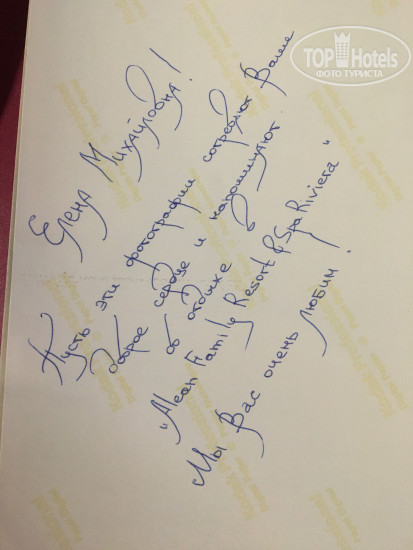 TOP Hotels
ФОТО ТУРИСТА
Елена Михайловна!
Пусть эти фотографии согревают Ваше
доброе сердце и напоминают
об отдыхе в
"Alean Family Resort & Spa Riviera"
Мы Вас очень любим!